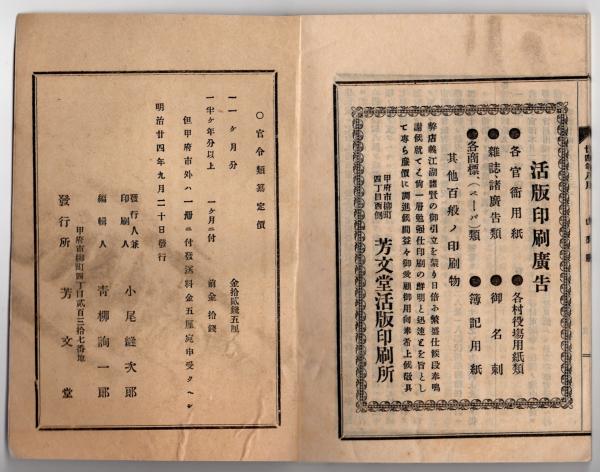 活版印刷廣告
各官衙用紙
各村役場用紙類
雜誌、諸廣告類
御名刺
各商標、(レーバー)類
簿記用紙
其他百般ノ印刷物
弊店義江湖諸賢の御引立を蒙り日倍ニ繁盛仕候段奉鳴
謝候就てハ尚一層勉强仕印刷の鮮明と迅速とを旨とし
て專ら廉價に調進仕候間益々御愛顧御用向奉希上候敬具
甲府市柳町
四丁目西側
芳文堂活版印刷所
○官令類纂定價
一 一ヶ月分
金拾貳錢五厘
一 半ヶ年分以上 一ヶ月ニ付
前金拾錢
但甲府市外ハ一册ニ付發送料金五厘宛申受クヘシ
明治廿四年九月二十日發行
發行人兼
印刷人
小尾鎹次郎
編輯人
靑柳詢一郎
甲府市柳町四丁目貳百三拾七番地
發行所
芳文堂